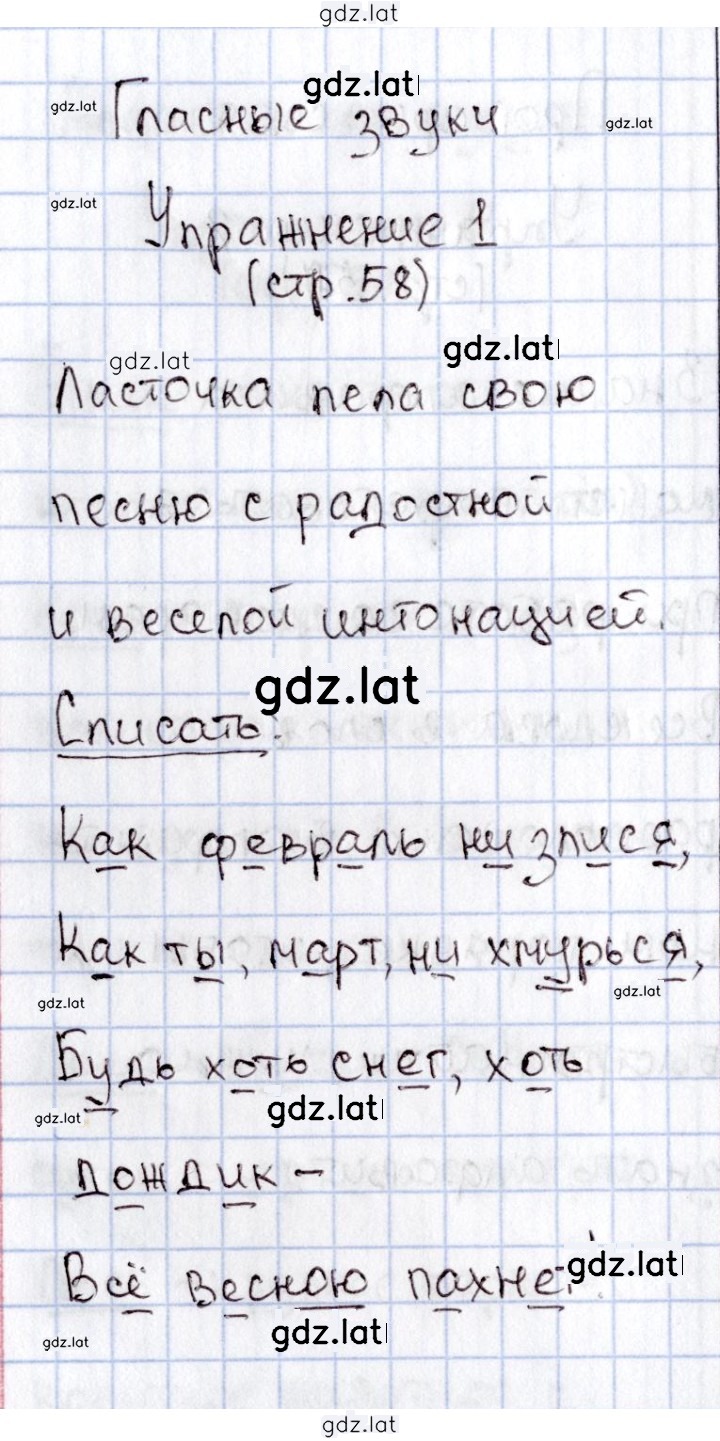 gdz.lat
gdz.lat
gdz.lat
Гласные звуки
gdz.lat
gdz.lat
Упражнение 1
(стр.58)
gdz.lat
gdz.lat
Ласточка пела свою
песню с радостной
и веселой интонацией.
gdz.lat
Списать.
Как февраль ни злися,
Как ты, март, ни хмурься,
gdz.lat
gdz.lat
Будь хоть снег, хоть
gdz.lat
gdz.lat
дождик –
Всё весною пахнет!
gdz.lat
gdz.lat
gdz.lat
gdz.lat